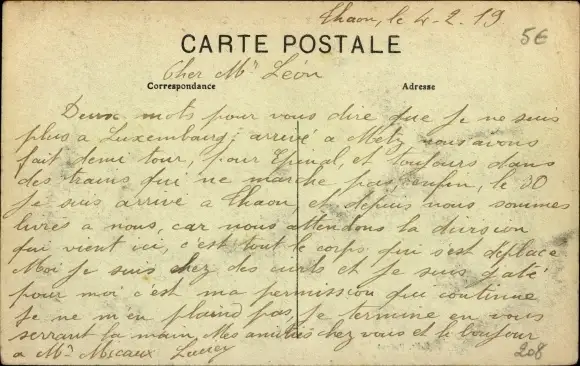 Chaon, le 4-2.19
5€
CARTE POSTALE
Cher Mr Léon
Correspondance
Adresse
Deux mots pour vous dire que je ne suis
plus a Luxembourg, arrivé a Metz nous avons
fait demi tour, pour Epinal, et toujours dans
des trains qui ne marche pas, enfin, le 30
je suis arrivé a Chaon et depuis nous sommes
livrés a nous, car nous attendons la division
qui vient ici, c'est tout le corps qui s'est déplacé
Moi je suis chez des civils et je suis gaté
pour moi c'est ma permission qui continue
je ne m'en plaind pas, je termine en vous
serrant la main, Mes amitiés chez vous et le bonjour
a Mr Micaux
208